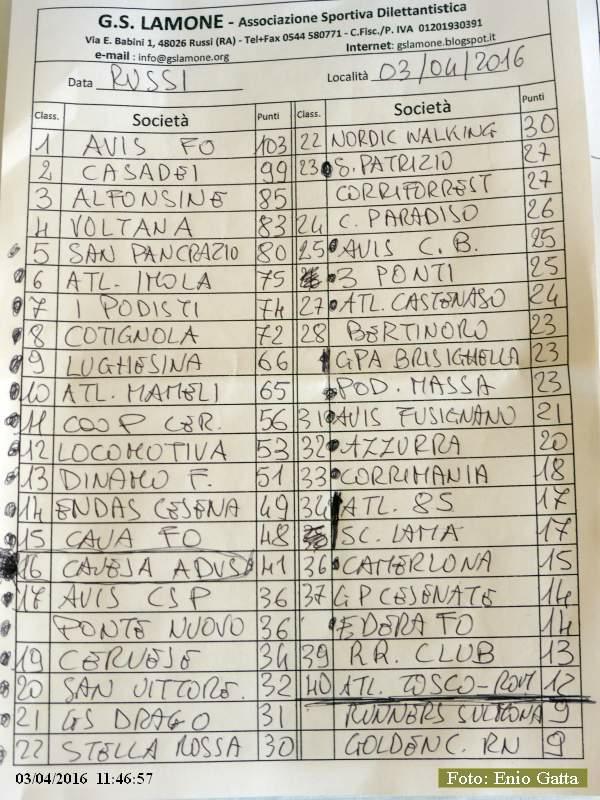 G.S. LAMONE - Associazione Sportiva Dilettantistica
Via E. Babini 1, 48026 Russi (RA) - Tel+Fax 0544 580771 - C.Fisc./P. IVA 01201930391
e-mail : info@gslamone.org Internet: gslamone.blogspot.it
Data RUSSI Località 03/04/2016
Class. Società Punti Class. Società Punti
1 AVIS FO 103 22 NORDIC WALKING 30
2 CASADEI 99 23 S. PATRIZIO 27
3 ALFONSINE 85 CORRIFORREST 27
4 VOLTANA 83 24 C. PARADISO 26
5 SAN PANCRAZIO 80 25 AVIS C. B. 25
6 ATL. IMOLA 75 3 PONTI 25
7 I PODISTI 74 27 ATL. CASTENASO 24
8 COTIGNOLA 72 28 BERTINORO 23
9 LUGHESINA 66 GPA BRISIGHELLA 23
10 ATL. MAMELI 65 POD. MASSA 23
11 COOP CER. 56 31 AVIS FUSIGNANO 21
12 LOCOMOTIVA 53 32 AZZURRA 20
13 DINAMO F. 51 33 CORRIMANIA 18
14 ENDAS CESENA 49 34 ATL. 85 17
15 CAVA FO 48 SC. LAMA 17
16 CAVEJA ADVS 41 36 CAMERLONA 15
17 AVIS CSP 36 37 GP CESENATE 14
PONTE NUOVO 36 EDERA FO 14
19 CERVESE 34 39 R.R. CLUB 13
20 SAN VITTORE. 32 40 ATL. TOSCO-ROM 12
21 GS DRAGO 31 RUNNERS SULMONA 9
22 STELLA ROSSA 30 GOLDEN C. RN 9
03/04/2016 11:46:57
Foto: Enio Gatta